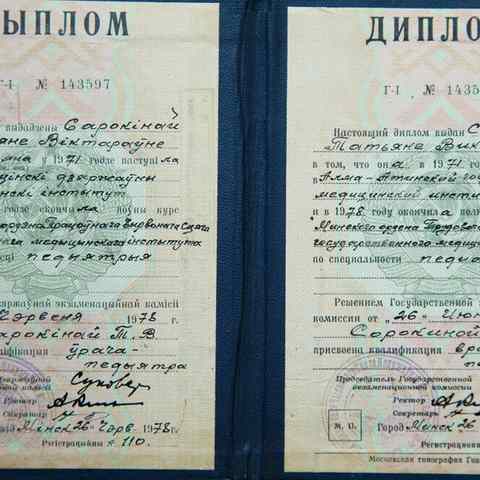 ЫПЛОМ
Г-I № 143597
выдадзены Сарокінай
яне Віктараўне
у 1971 годзе паступіла
цынскі дзяржаўны
інстытут
годзе скончыла поўны курс
ордэна Працоўнага Чырвонага Сцяга
нага медыцынскага інстытута
педыятрыя
зяржаўнай экзаменацыйнай камісіі
чэрвеня 1978 г.
арокінай Т. В.
ліфікацыя ўрача-
педыятра
Рэктар
Сакратар
Мінск 26 Чэрв. 1978 г.
Рэгістрацыйны № 110.
ДИПЛО
Г-I № 1435
Настоящий диплом выдан С
Татьяне Вик
в том, что она в 1971 го
в Алма-Атинский го
медицинский инсти
и в 1978 году окончила пол
Минского ордена Трудово
государственного медиц
по специальности педиа
Решением Государственной
комиссии от "26" Июн
Сорокиной
присвоена квалификация вра
пе
Председатель Государственной
экзаменационной комиссии
Ректор
Секретарь
М. П. Город Минск 26
Регистрацион
Московская типография Гоз